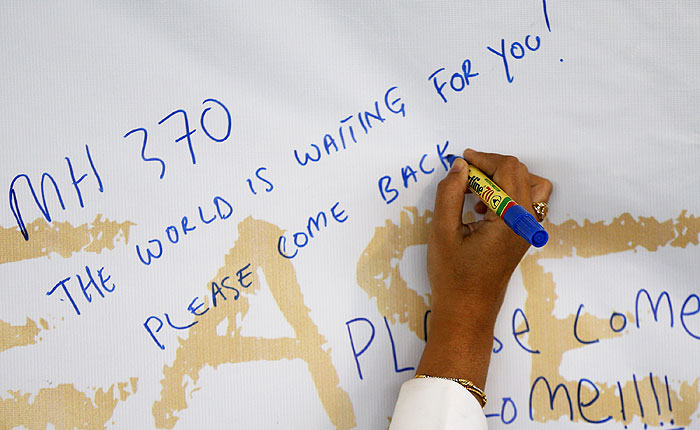 MH 370
THE WORLD IS WAITING FOR YOU!
PLEASE COME BACK
EASE
70
come